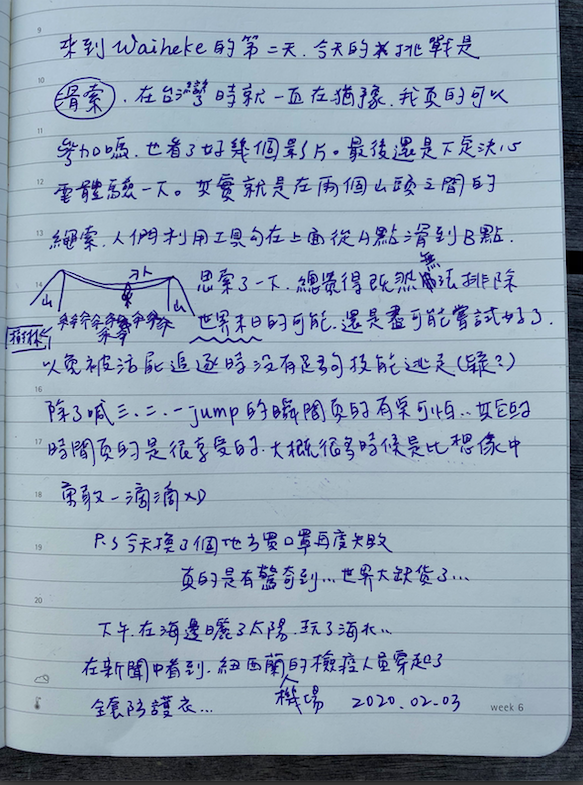 來到 Waiheke 的第二天. 今天的挑戰是
滑索. 在台灣時就一直在猶豫. 我真的可以
參加嗎. 也看了好幾個影片。最後還是下定決心
要體驗一下。其實就是在兩個山頭之間的
繩索. 人們利用工具勾在上面從A點滑到B點.
思索了一下. 總覺得既然無法排除
世界末日的可能. 還是盡可能嘗試好了.
山 人 山
樹林
以免被活屍追逐時沒有足夠技能逃走(疑?)
除了喊三.二.一 jump 的瞬間真的有點可怕.. 其它的
時間真的是很享受的. 大概很多時候是比想像中
勇敢一滴滴 XD
P.S 今天換了個地方買口罩再度失敗
真的是有驚奇到... 世界大缺貨了...
下午. 在海邊曬了太陽. 玩了海水..
在新聞中看到. 紐西蘭機場的檢疫人員穿起了
全套防護衣... 2020.02.03
9
10
11
12
13
14
16
17
18
19
20
week 6